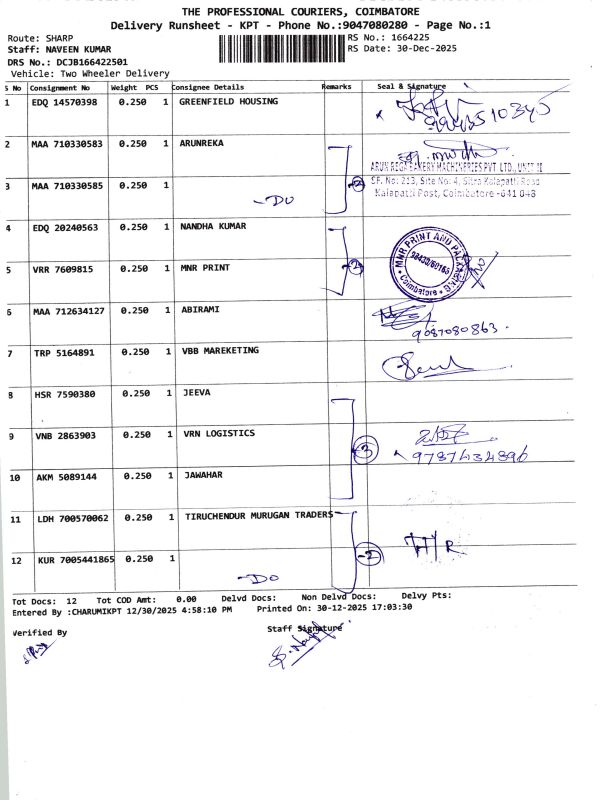 THE PROFESSIONAL COURIERS, COIMBATORE
Delivery Runsheet - KPT - Phone No.:9047080280 - Page No.:1
Route: SHARP
RS No.: 1664225
Staff: NAVEEN KUMAR
RS Date: 30-Dec-2025
DRS No.: DCJB166422501
Vehicle: Two Wheeler Delivery
S No Consignment No Weight PCS Consignee Details Remarks Seal & Signature
1 EDQ 14570398 0.250 1 GREENFIELD HOUSING
2 MAA 710330583 0.250 1 ARUNREKA
ARUN REGA BAKERY MACHINERIES PVT LTD., UNIT II
3 MAA 710330585 0.250 1 -DO -2 SF. No: 213, Site No: 4, Sitra Kalapatti Road
Kalapatti Post, Coimbatore -641 048
4 EDQ 20240563 0.250 1 NANDHA KUMAR
MNR PRINT AND PACKAGING
Coimbatore
5 VRR 7609815 0.250 1 MNR PRINT -2
6 MAA 712634127 0.250 1 ABIRAMI
9087080863.
7 TRP 5164891 0.250 1 VBB MAREKETING
8 HSR 7590380 0.250 1 JEEVA
9 VNB 2863903 0.250 1 VRN LOGISTICS -3
9787434896
10 AKM 5089144 0.250 1 JAWAHAR
11 LDH 700570062 0.250 1 TIRUCHENDUR MURUGAN TRADERS
12 KUR 7005441865 0.250 1 -DO -2
Tot Docs: 12 Tot COD Amt: 0.00 Delvd Docs: Non Delvd Docs: Delvy Pts:
Entered By :CHARUMIKPT 12/30/2025 4:58:10 PM Printed On: 30-12-2025 17:03:30
Verified By
Staff Signature